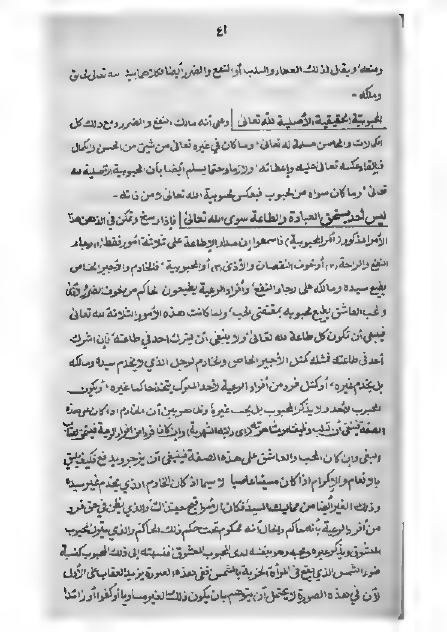 ٤١
ومنعه ويقال في ذلك العطاء والسلب أو النفع والضرر أيضا فكلاهما بيد الله تعالى
وملكه -
المحبوبية الحقيقية الأصلية لله تعالى وهي أنه مالك النفع والضرر ومع ذلك كل
الكمالات والمحاسن مسلمة له تعالى وما كان في غيره تعالى من شيء من الحسن والكمال
تعالى عليه وإعطائه ولازما حتما يسلم أيضا بأن المحبوبية الأصلية لله
تعالى وما كان سواه من المحبوب فبعكس محبوبية الله تعالى لا من ذاته -
ليس أحد يستحق العبادة والطاعة سوى الله تعالى فإذا رسخ وتمكن في الذهن هذا
الأمر المذكور أمر المحبوبية، فاسمعوا إن مدار الإطاعة على ثلاثة أمور فقط، رجاء
النفع والراحة أو خوف النقصان والأذى أو المحبوبية فالخادم والأجير الخاص
يطيع سيده ومالكه على رجاء النفع وأفراد الرعية يطيعون الحاكم من خوف الضرر
والمحب العاشق يطيع محبوبه بمقتضى الحب ولما كانت هذه الأمور الثلاثة لله تعالى
فينبغي أن تكون كل طاعة لله تعالى ولا ينبغي أن يشرك أحد في طاعته فإن أشرك
أحد في طاعته فمثله كمثل الأجير الخاص والخادم لرجل الذي لا يخدم سيده ومالكه
بل يخدم غيره، أو كمثل فرد من أفراد الرعية لأحد الملوك يتخذ حاكما غيره، أو يكون
لأحد ولا يذكر المحبوب بل يحب غيره وظاهر بين أن الخادم إذا كان على هذه
الصفة فينبغي أن وإن كان فردا من أفراد الرعية فينبغي
وإن كان المحب والعاشق على هذه الصفة فينبغي أن يزجر ويدفع فكيف
بالإنعام والإكرام إذا كان لا سيما إذا كان الخادم الذي يخدم غير سيده
وذلك الغير أيضا من مماليك السيد فكان أسوأ قبح حينئذ والذي يظن في حق فرد
من أفراد الرعية بأنه حاكم والحال أنه محكوم تحت حكم ذلك الحاكم والذي
ويذكر غيره لدى المحبوب فنسبته إلى ذلك المحبوب كنسبة
ضوء الشمس الذي يقع في المرآة إلى الشمس ففي هذه الصورة يزيد العقاب على الأول
لأن في هذه الصورة لا يحتمل أن يتوهم بأن يكون ذلك الغير مساويا أو كفوا أو زائدا